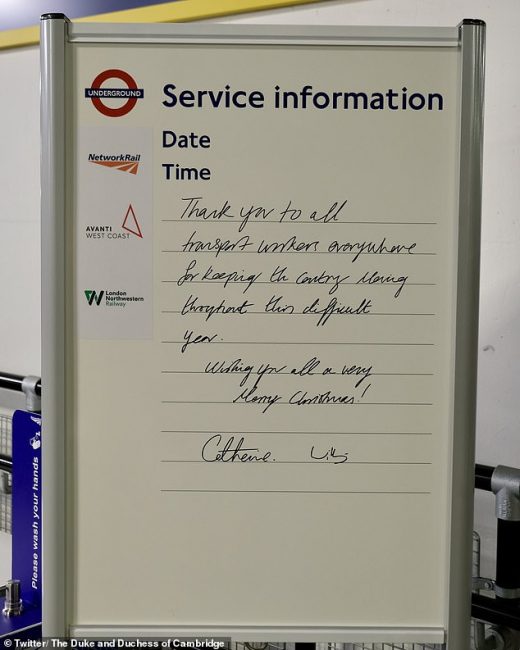 UNDERGROUND
Service information
Date
Time
NetworkRail
AVANTI
WEST COAST
London
Northwestern
Railway
Thank you to all
transport workers everywhere
for keeping the country moving
throughout this difficult
year.
Wishing you all a very
Merry Christmas!
Catherine.
Please wash your hands
© Twitter/ The Duke and Duchess of Cambridge